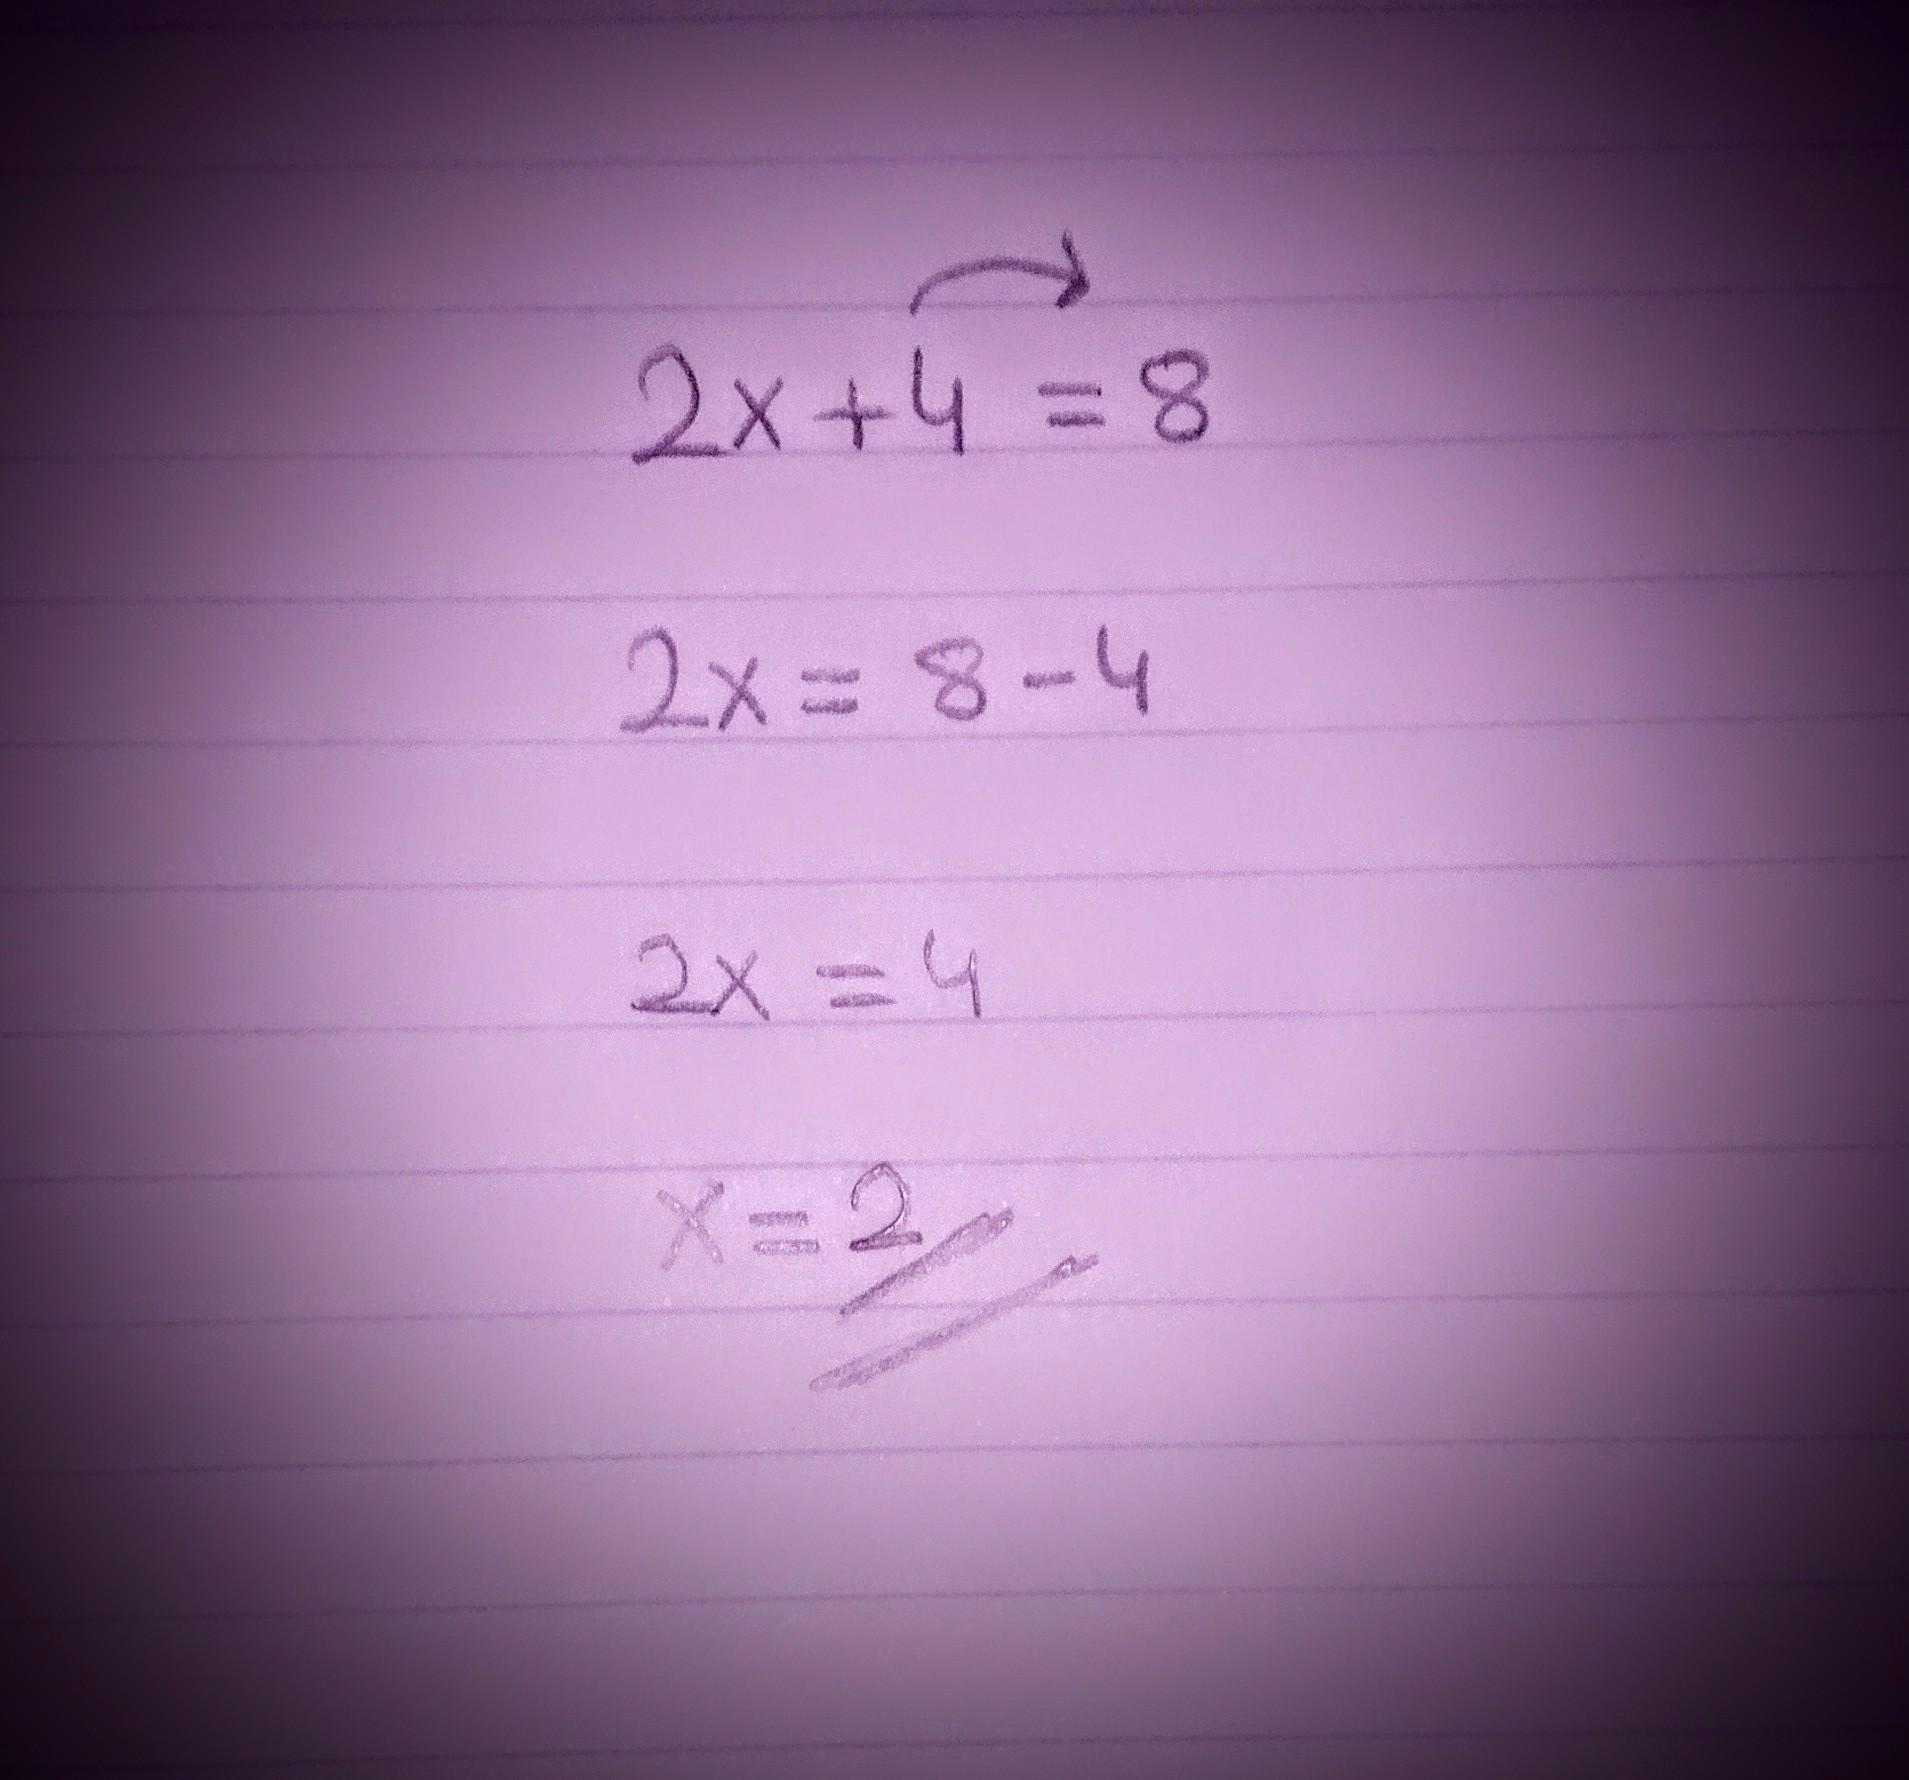 2x+4 = 8
2x = 8-4
2x = 4
x = 2